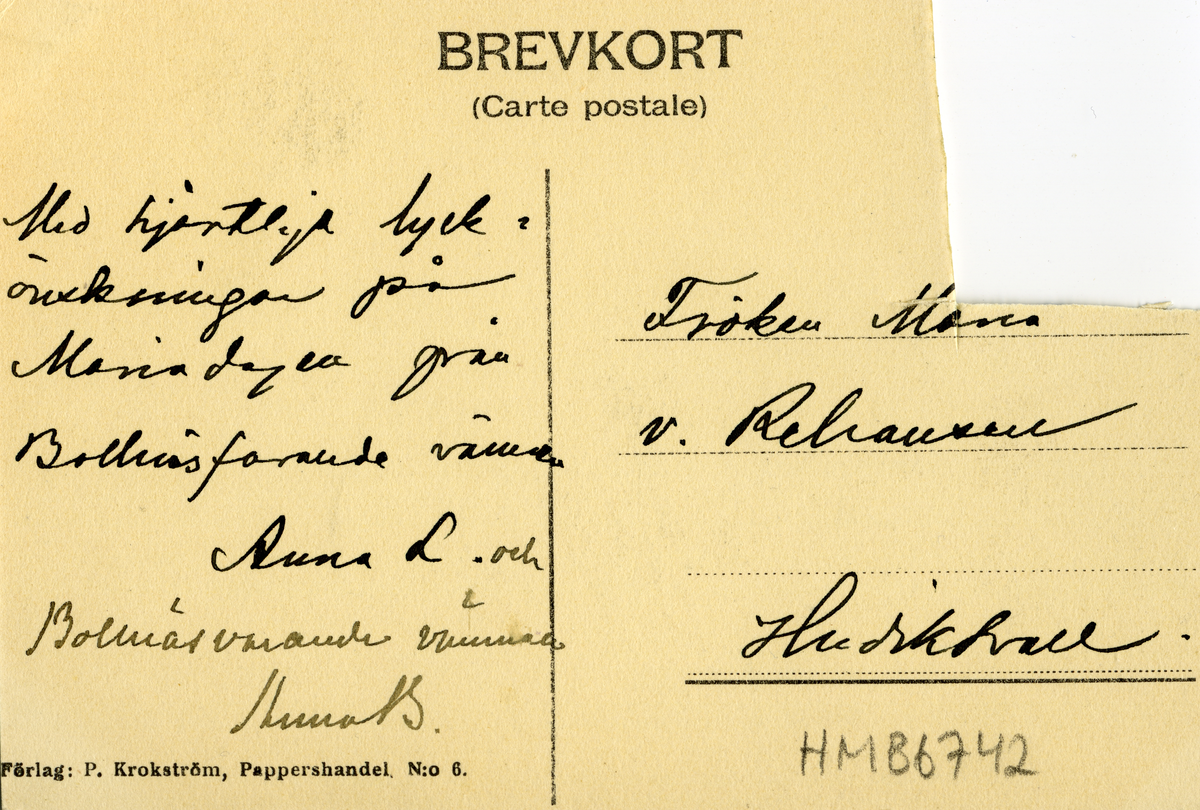 BREVKORT
(Carte postale)
Med hjärtliga lyck-
önskningar på
Mariadagen från
Bollnäsfarande vännen
Anna L. och
Bollnäsvarande vännen
Anna B.
Förlag: P. Krokström, Pappershandel. N:o 6.
Fröken Maria
v. Rehausen
Hudiksvall.
HMB6742